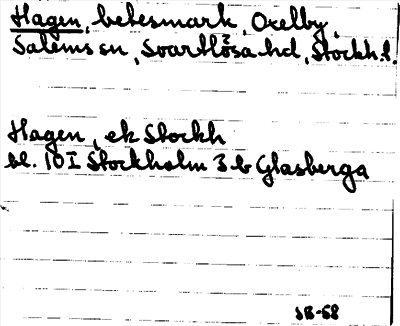 Hagen, betesmark, Oxelby,
Salems sn, Svartlösa hd, Stockh.l.
Hagen, ek Stockh
bl. 10 I Stockholm 3 b Glasberga
SR-68